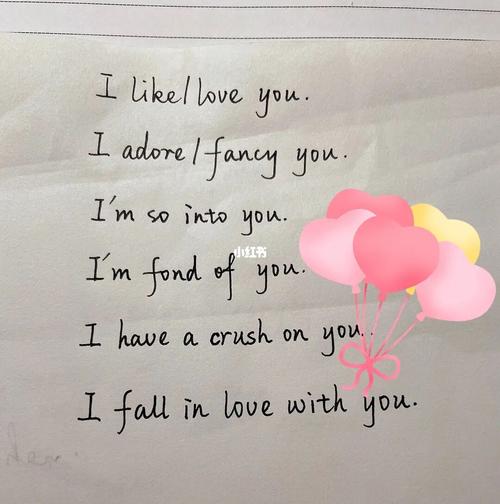 I like/love you.
I adore/fancy you.
I'm so into you.
小红书
I'm fond of you.
I have a crush on you.
I fall in love with you.